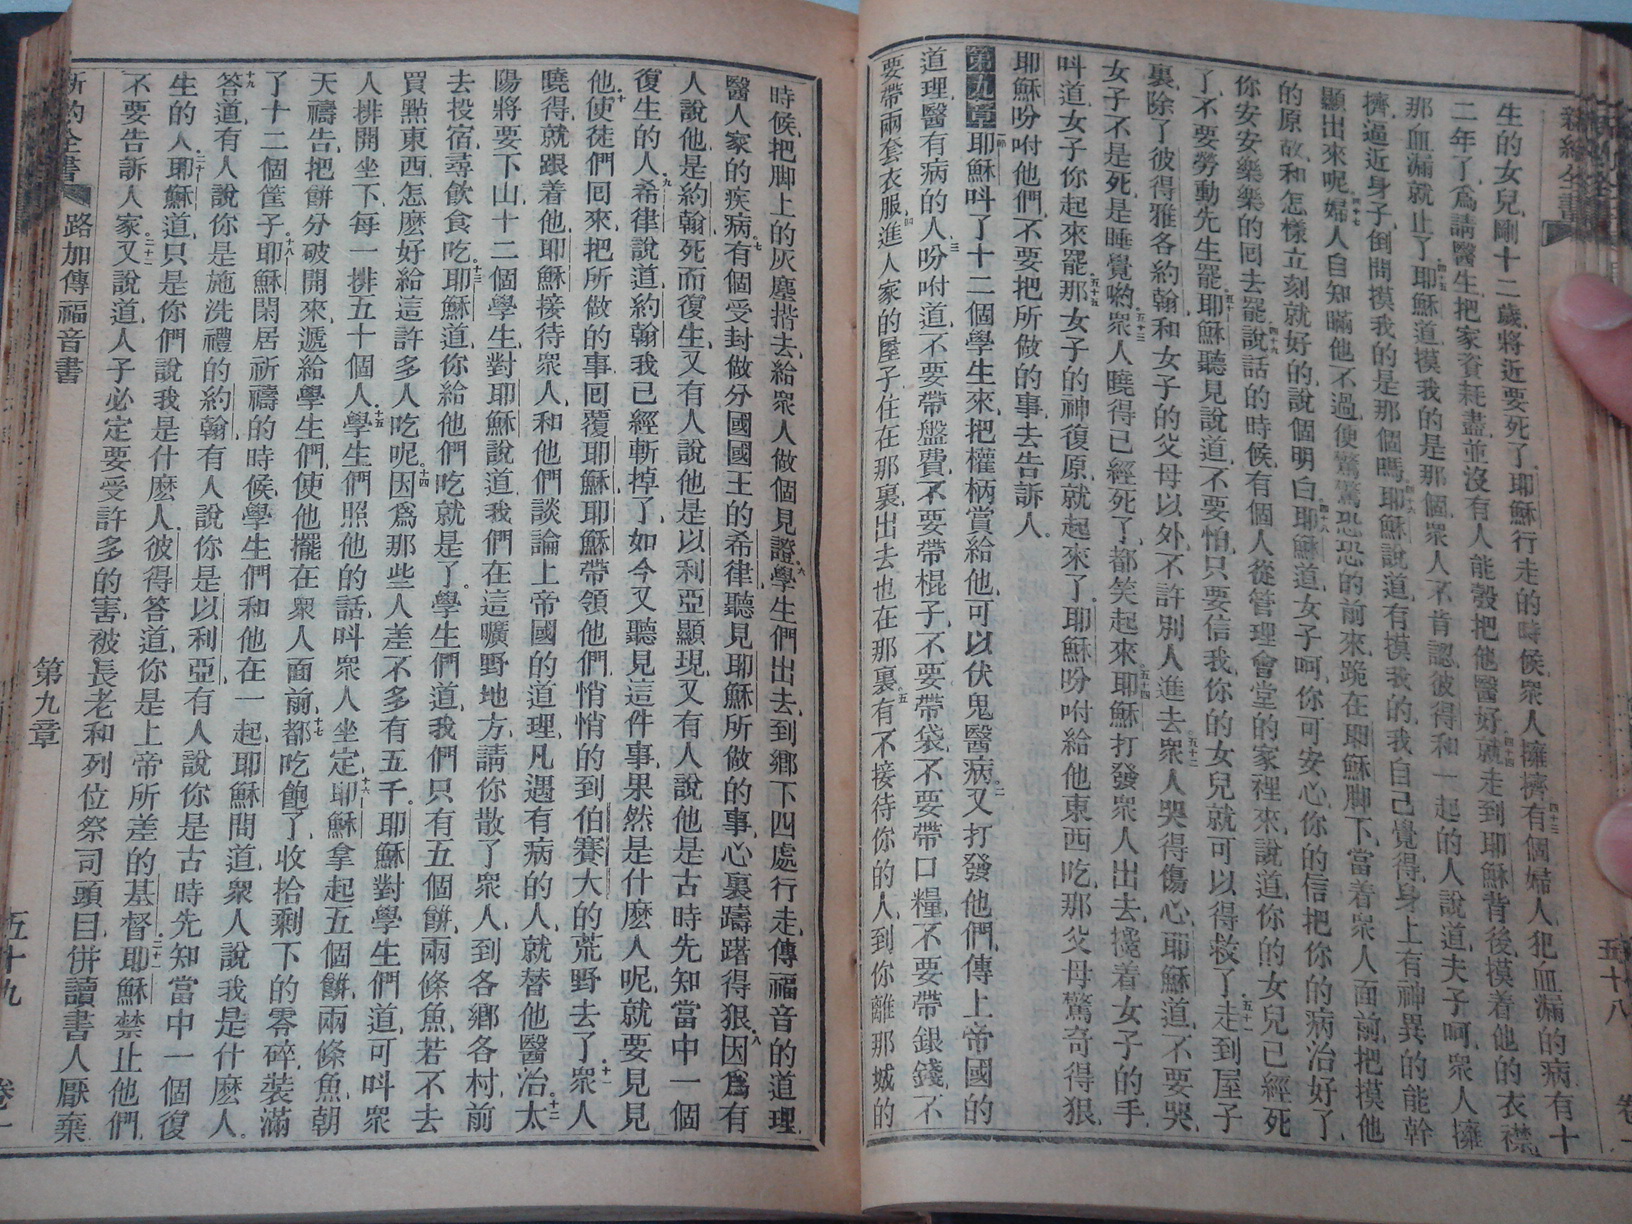 新約全書
五十八
卷一
生的女兒剛十二歲將近要死了耶穌行走的時候衆人擁擠有個婦人犯血漏的病有十
二年了爲請醫生把家資耗盡並沒有人能彀把他醫好就走到耶穌背後摸着他的衣襟
那血漏就止了耶穌道摸我的是那個衆人不肯認彼得和一起的人說道夫子呵衆人擁
擠逼近身子倒問摸我的是那個嗎耶穌說道有摸我的我自己覺得身上有神異的能幹
顯出來呢婦人自知瞞他不過便驚驚恐恐的前來跪在耶穌脚下當着衆人面前把摸他
的原故和怎樣立刻就好的說個明白耶穌道女子呵你可安心你的信把你的病治好了
你安安樂樂的囘去罷說話的時候有個人從管理會堂的家裡來說道你的女兒已經死
了不要勞動先生罷耶穌聽見說道不要怕只要信我你的女兒就可以得救了走到屋子
裏除了彼得雅各約翰和女子的父母以外不許別人進去衆人哭得傷心耶穌道不要哭
女子不是死是睡覺喲衆人曉得已經死了都笑起來耶穌打發衆人出去攙着女子的手
呌道女子你起來罷那女子的神復原就起來了耶穌吩咐給他東西吃那父母驚奇得狠
耶穌吩咐他們不要把所做的事去告訴人
第九章耶穌呌了十二個學生來把權柄賞給他可以伏鬼醫病又打發他們傳上帝國的
道理醫有病的人吩咐道不要帶盤費不要帶棍子不要帶袋不要帶口糧不要帶銀錢不
要帶兩套衣服進人家的屋子住在那裏出去也在那裏有不接待你的人到你離那城的
時候把脚上的灰塵揩去給衆人做個見證學生們出去到鄉下四處行走傳福音的道理
醫人家的疾病有個受封做分國國王的希律聽見耶穌所做的事心裏躊躇得狠因爲有
人說他是約翰死而復生又有人說他是以利亞顯現又有人說他是古時先知當中一個
復生的人希律說道約翰我已經斬掉了如今又聽見這件事果然是什麽人呢就要見見
他使徒們囘來把所做的事囘覆耶穌耶穌帶領他們悄悄的到伯賽大的荒野去了衆人
曉得就跟着他耶穌接待衆人和他們談論上帝國的道理凡遇有病的人就替他醫治太
陽將要下山十二個學生對耶穌說道我們在這曠野地方請你散了衆人到各鄉各村前
去投宿尋飲食吃耶穌道你給他們吃就是了學生們道我們只有五個餅兩條魚若不去
買點東西怎麽好給這許多人吃呢因爲那些人差不多有五千耶穌對學生們道可呌衆
人排開坐下每一排五十個人學生們照他的話呌衆人坐定耶穌拿起五個餅兩條魚朝
天禱告把餅分破開來遞給學生們使他擺在衆人面前都吃飽了收拾剩下的零碎裝滿
了十二個筐子耶穌閑居祈禱的時候學生們和他在一起耶穌問道衆人說我是什麽人
答道有人說你是施洗禮的約翰有人說你是以利亞有人說你是古時先知當中一個復
生的人耶穌道只是你們說我是什麽人彼得答道你是上帝所差的基督耶穌禁止他們
不要告訴人家又說道人子必定要受許多的害被長老和列位祭司頭目併讀書人厭棄
新約全書 路加傳福音書 第九章 五十九 卷一